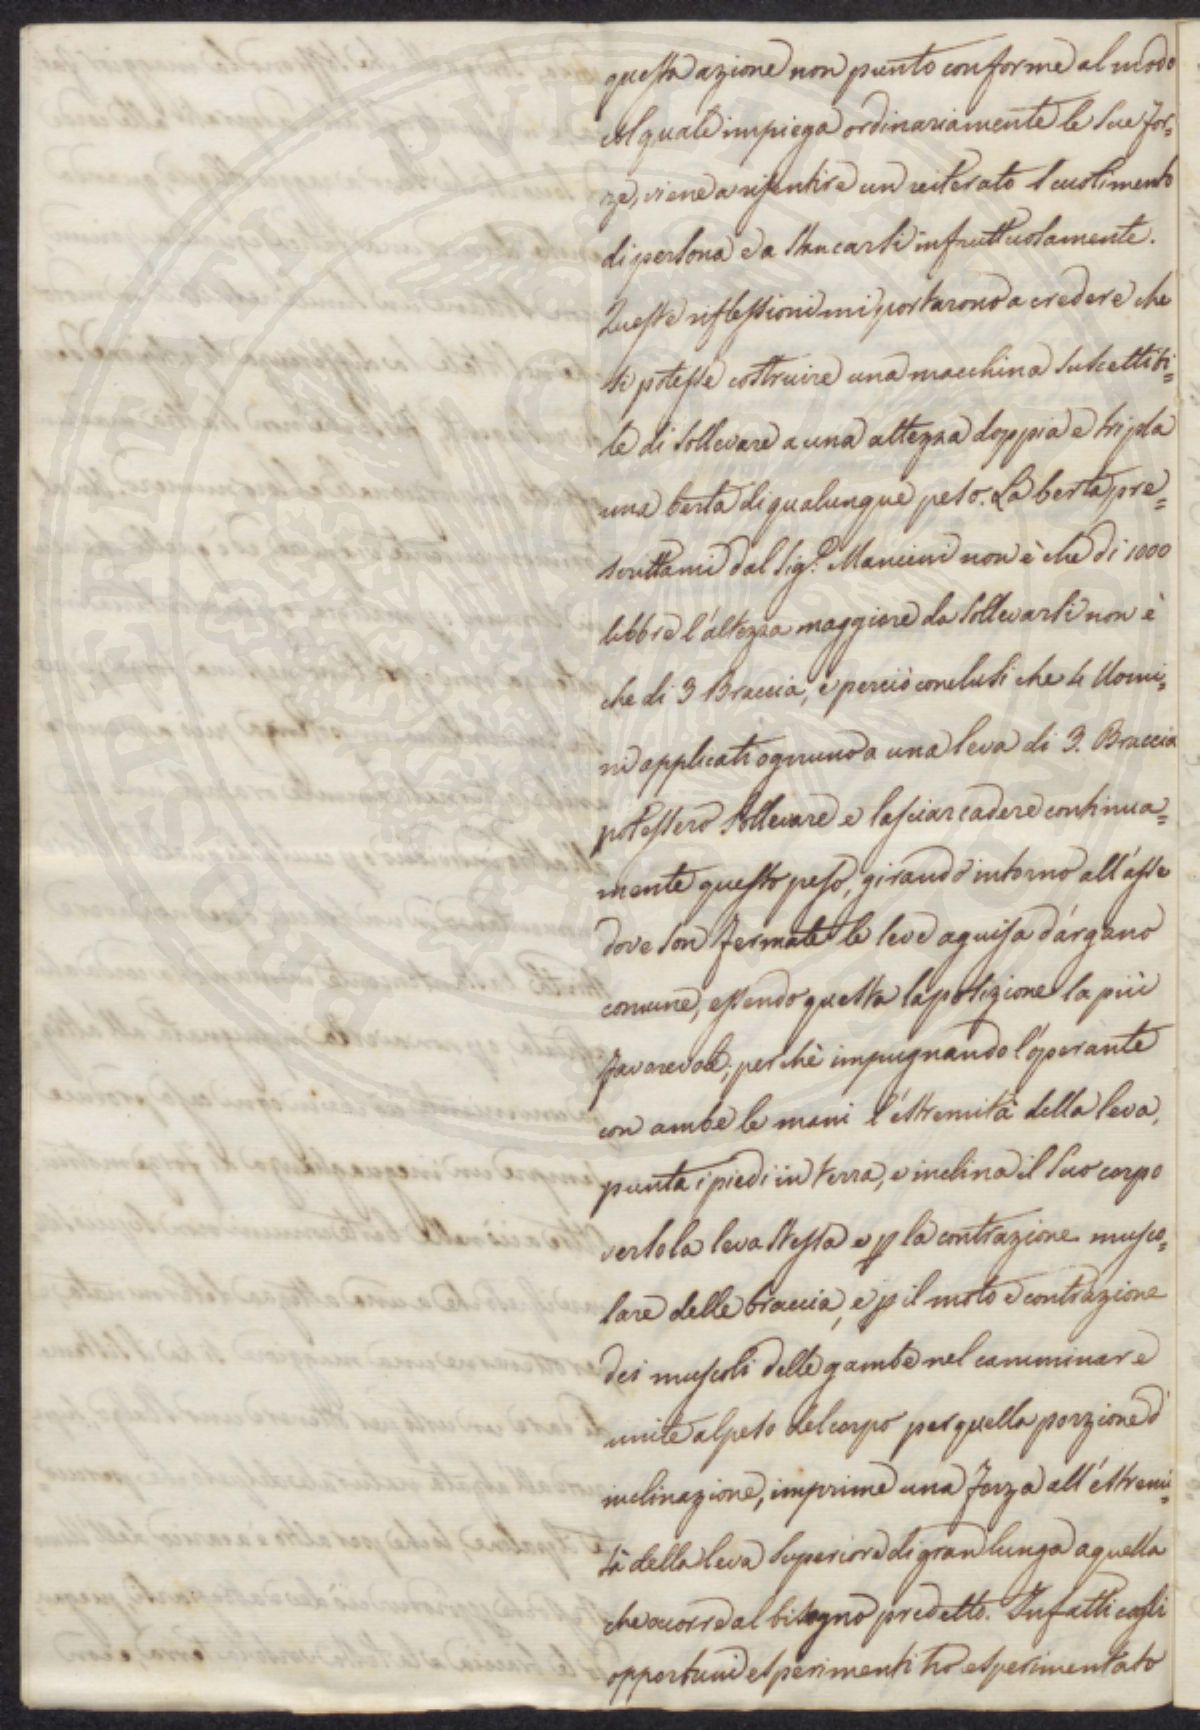 questa azione non punto conforme al modo
col quale impiega ordinariamente le sue for=
ze, viene a risentire un reiterato scuotimento
di persona e a stancarsi infruttuosamente.
Queste riflessioni mi portarono a credere che
si potesse costruire una macchina suscettibi=
le di sollevare a una altezza doppia e tripla
una berta di qualunque peso. La berta pre=
scrittami dal Sig.r Mancini non è che di 1000
libbre l'altezza maggiore da sollevarsi non è
che di 3 Braccia, e perciò conclusi che 4 Uomi=
ni applicati ognuno a una leva di 3. Braccia
potessero sollevare e lasciar cadere continua=
mente questo peso, girando intorno all'asse
dove son fermate le leve a guisa d'argano
comune, essendo questa la posizione la più
favorevole; perchè impugnando l'operante
con ambe le mani l'estremità della leva,
punta i piedi in terra, e inclina il suo corpo
verso la leva stessa e p la contrazione musco=
lare delle braccia, e p il moto e contrazione
dei muscoli delle gambe nel camminare
unite al peso del corpo per quella porzione d'
inclinazione, imprime una forza all'estremi=
tà della leva superiore di gran lunga a quella
che occorre al bisogno predetto. Infatti cogli
opportuni esperimenti ho esperimentato